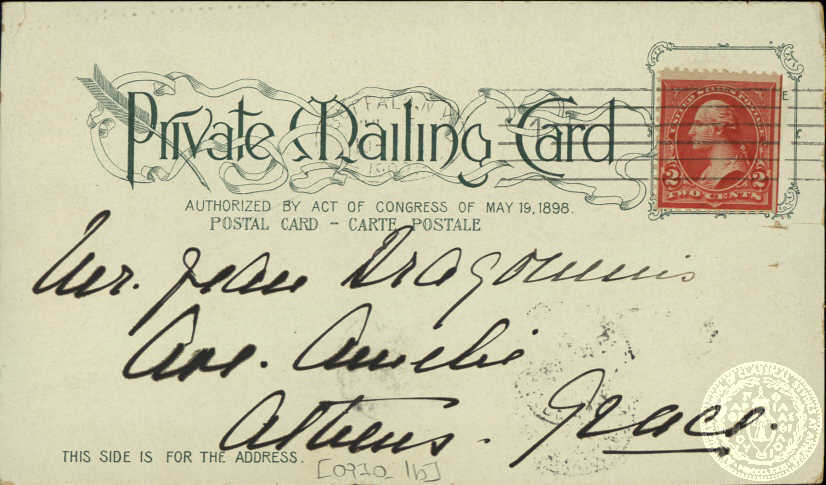 Private Mailing Card
AUTHORIZED BY ACT OF CONGRESS OF MAY 19, 1898.
POSTAL CARD – CARTE POSTALE
UNITED STATES POSTAGE
2 2
TWO CENTS
Mr. Jean Dragoumis
Ave. Amelie
Athens. Greece.
THIS SIDE IS FOR THE ADDRESS.
[0970_1b]